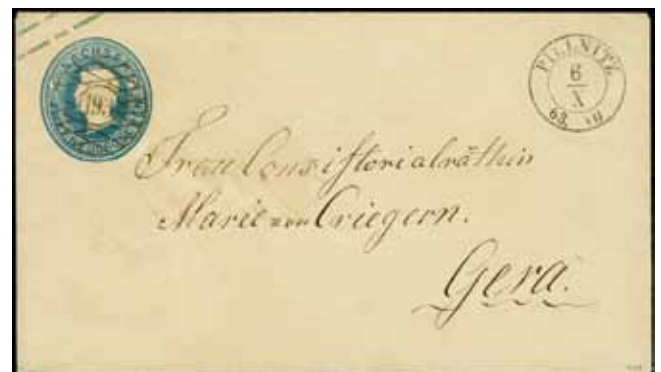 PILLNITZ
6
X
63. VII
193
Frau Consistorialräthin
Marie von Criegern.
Gera.